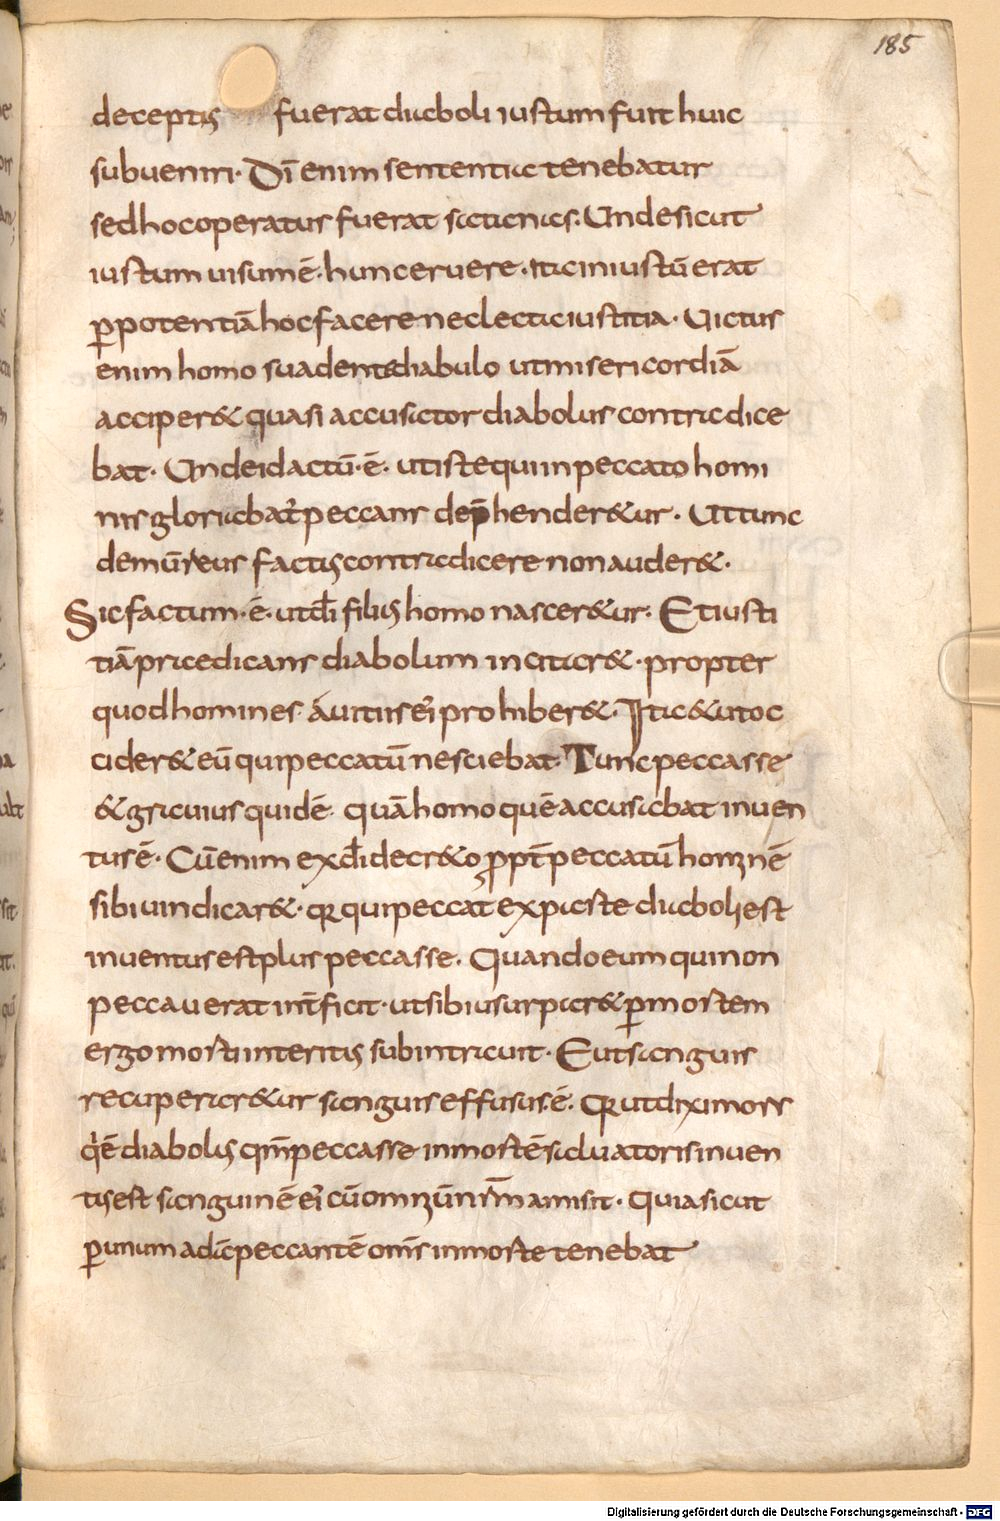 185
deceptus fuerat diaboli iustum fuit huic
subueniri. Dī enim sententia tenebatur
sed hoc operatus fuerat satanas. Unde sicut
iustum uisum ē. hunc eruere. ita iniustū erat
ꝑ potentiā hoc facere neclecta iustitia. Uictus
enim homo suadente diabulo ut misericordiā
acciper& quasi accusator diabolus contradice
bat. Unde id actū. ē. ut iste qui in peccato homi
nis gloriabat̄ peccans dep̄hender&ur. Ut tunc
demū reus factus contradicere non auder&.
Sic factum. ē. ut dī filius homo nascer&ur. Et iusti
tiā praedicans diabolum incitar&. propter
quod homines auitus ei prohiber&. Ita & ut oc
cider& eū qui peccatū nesciebat. Tunc peccasse
& grauius quidē quā homo quē accusabat inuen
tus ē. Cū enim ex dī decr&o ꝓpt̄ peccatū hominē
sibi uindicar&. qui peccat̄ ex parte diaboli est
inuentus est plus peccasse. Quando eum qui non
peccauerat int̄ficit. ut sibi usurpar& ꝑ mortem
ergo mors interitus subintrauit. Et ut sanguis
recuperar&ur sanguis effusus. ē. ut diximus
diabolus qm̄ peccasse in morte saluatoris inuen
tus est sanguinē ei cū omniū nrm̄ amisit. Quia sicut
ꝑ unum adā peccantē omīs in morte tenebat
Digitalisierung gefördert durch die Deutsche Forschungsgemeinschaft - DFG